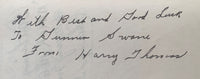 With Best and Good Luck
To Gunnar Swane
From: Harry Thomas